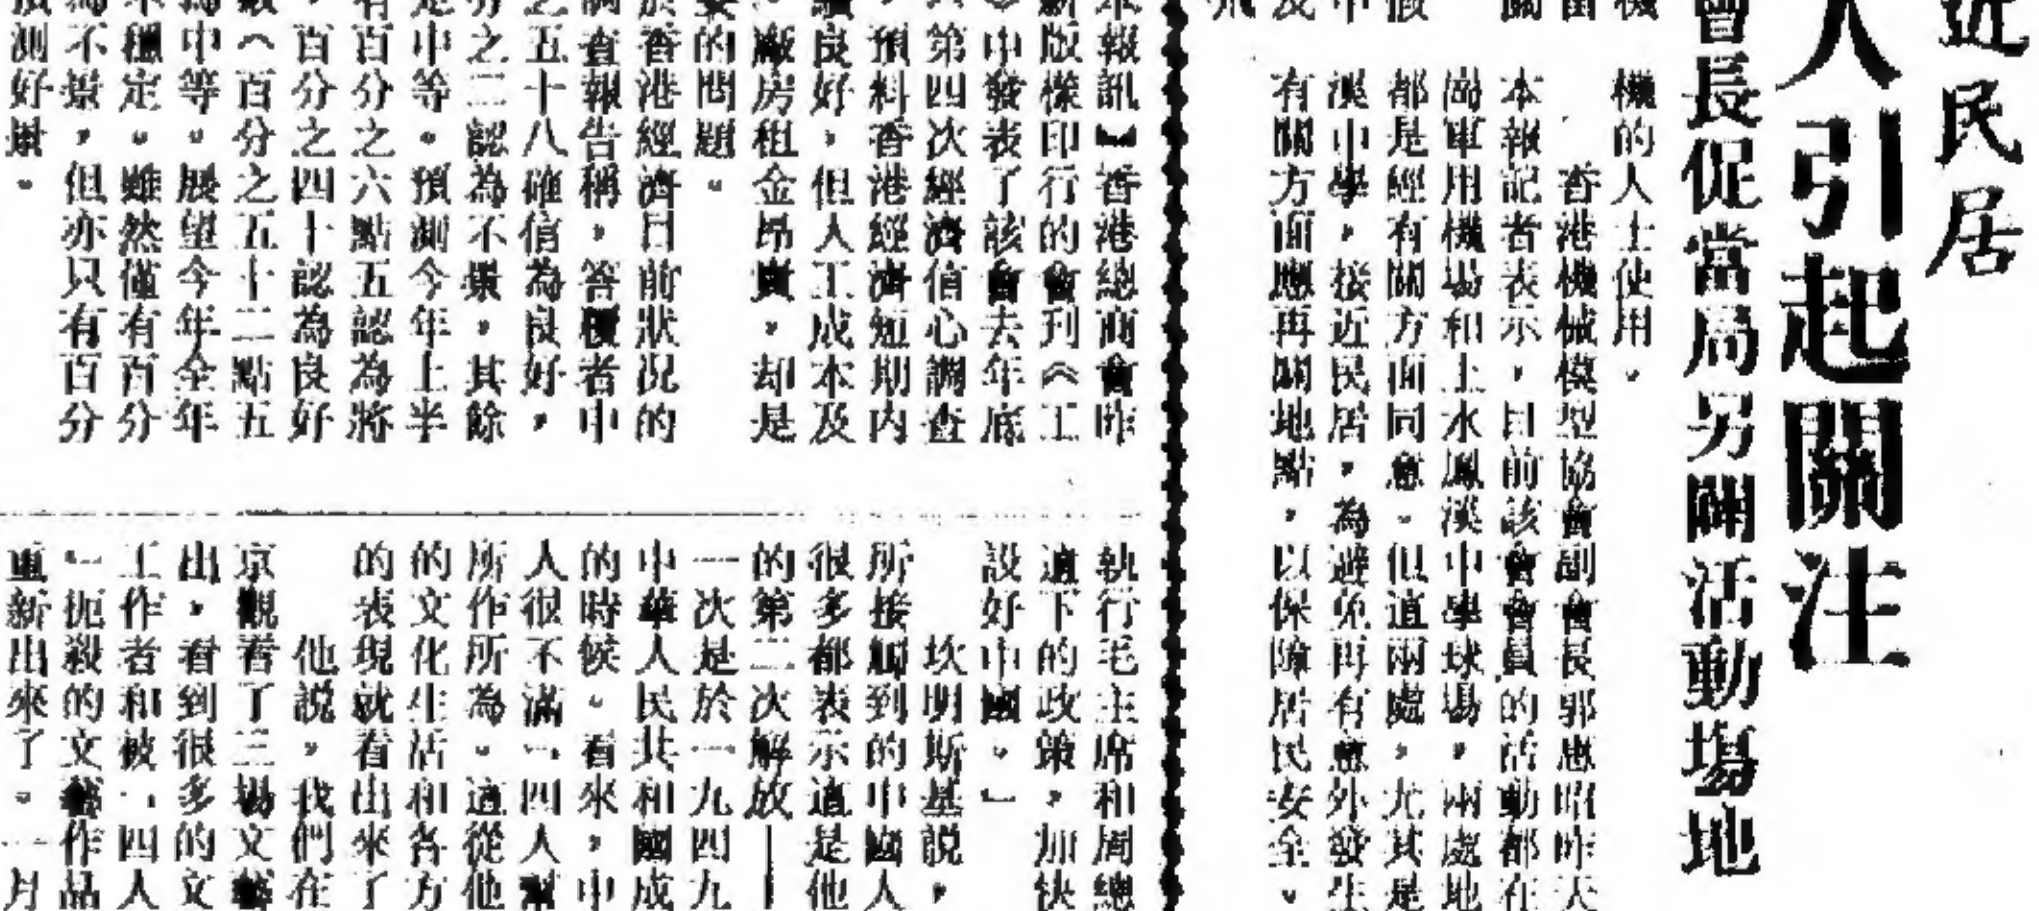 近民居
人引起關注
會長促當局另闢活動場地
機的人士使用。
香港機械模型協會副會長郭惠昭昨天
本報記者表示，目前該會會員的活動都在
崗軍用機場和上水鳳溪中學球場，兩處地
都是經有關方面同意。但這兩處，尤其是
溪中學，接近民居，為避免再有意外發生
有關方面應再闢地點，以保障居民安全。
本報訊】香港總商會昨
新版樣印行的會刊《工
》中發表了該會去年底
第四次經濟信心調查
，預料香港經濟短期内
續良好，但人工成本及
廠房租金昂貴，却是
要的問題。
於香港經濟目前狀况的
調查報告稱，答覆者中
之五十八確信為良好，
分之二認為不景，其餘
是中等。預測今年上半
有百分之六點五認為將
，百分之四十認為良好
數（百分之五十二點五
為中等。展望今年全年
不穩定。雖然僅有百分
為不景，但亦只有百分
預測好景。
執行毛主席和周總
遺下的政策，加快
設好中國。」
坎明斯基説，
所接觸到的中國人
很多都表示這是他
的第二次解放——
一次是於一九四九
中華人民共和國成
的時候。看來，中
人很不滿「四人幫
所作所為。這從他
的文化生活和各方
的表現就看出來了
他説，我們在
京觀看了三場文藝
出，看到很多的文
工作者和被「四人
」扼殺的文藝作品
重新出來了。一月